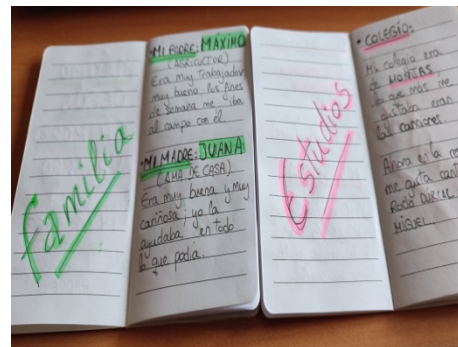 Familia
•MI PADRE: MÁXIMO
(AGRICULTOR)
Era muy trabajador
muy bueno, los fines
de semana me iba
al campo con él.
•MI MADRE: JUANA
(AMA DE CASA)
Era muy buena y muy
cariñosa; yo la
ayudaba en todo
lo que podía.
Estudios
• COLEGIO:
Mi colegio era
de MONJAS
lo que más me
gustaba eran
las canciones
Ahora en la
me gusta
ROCÍO DURCAL
MIGUEL